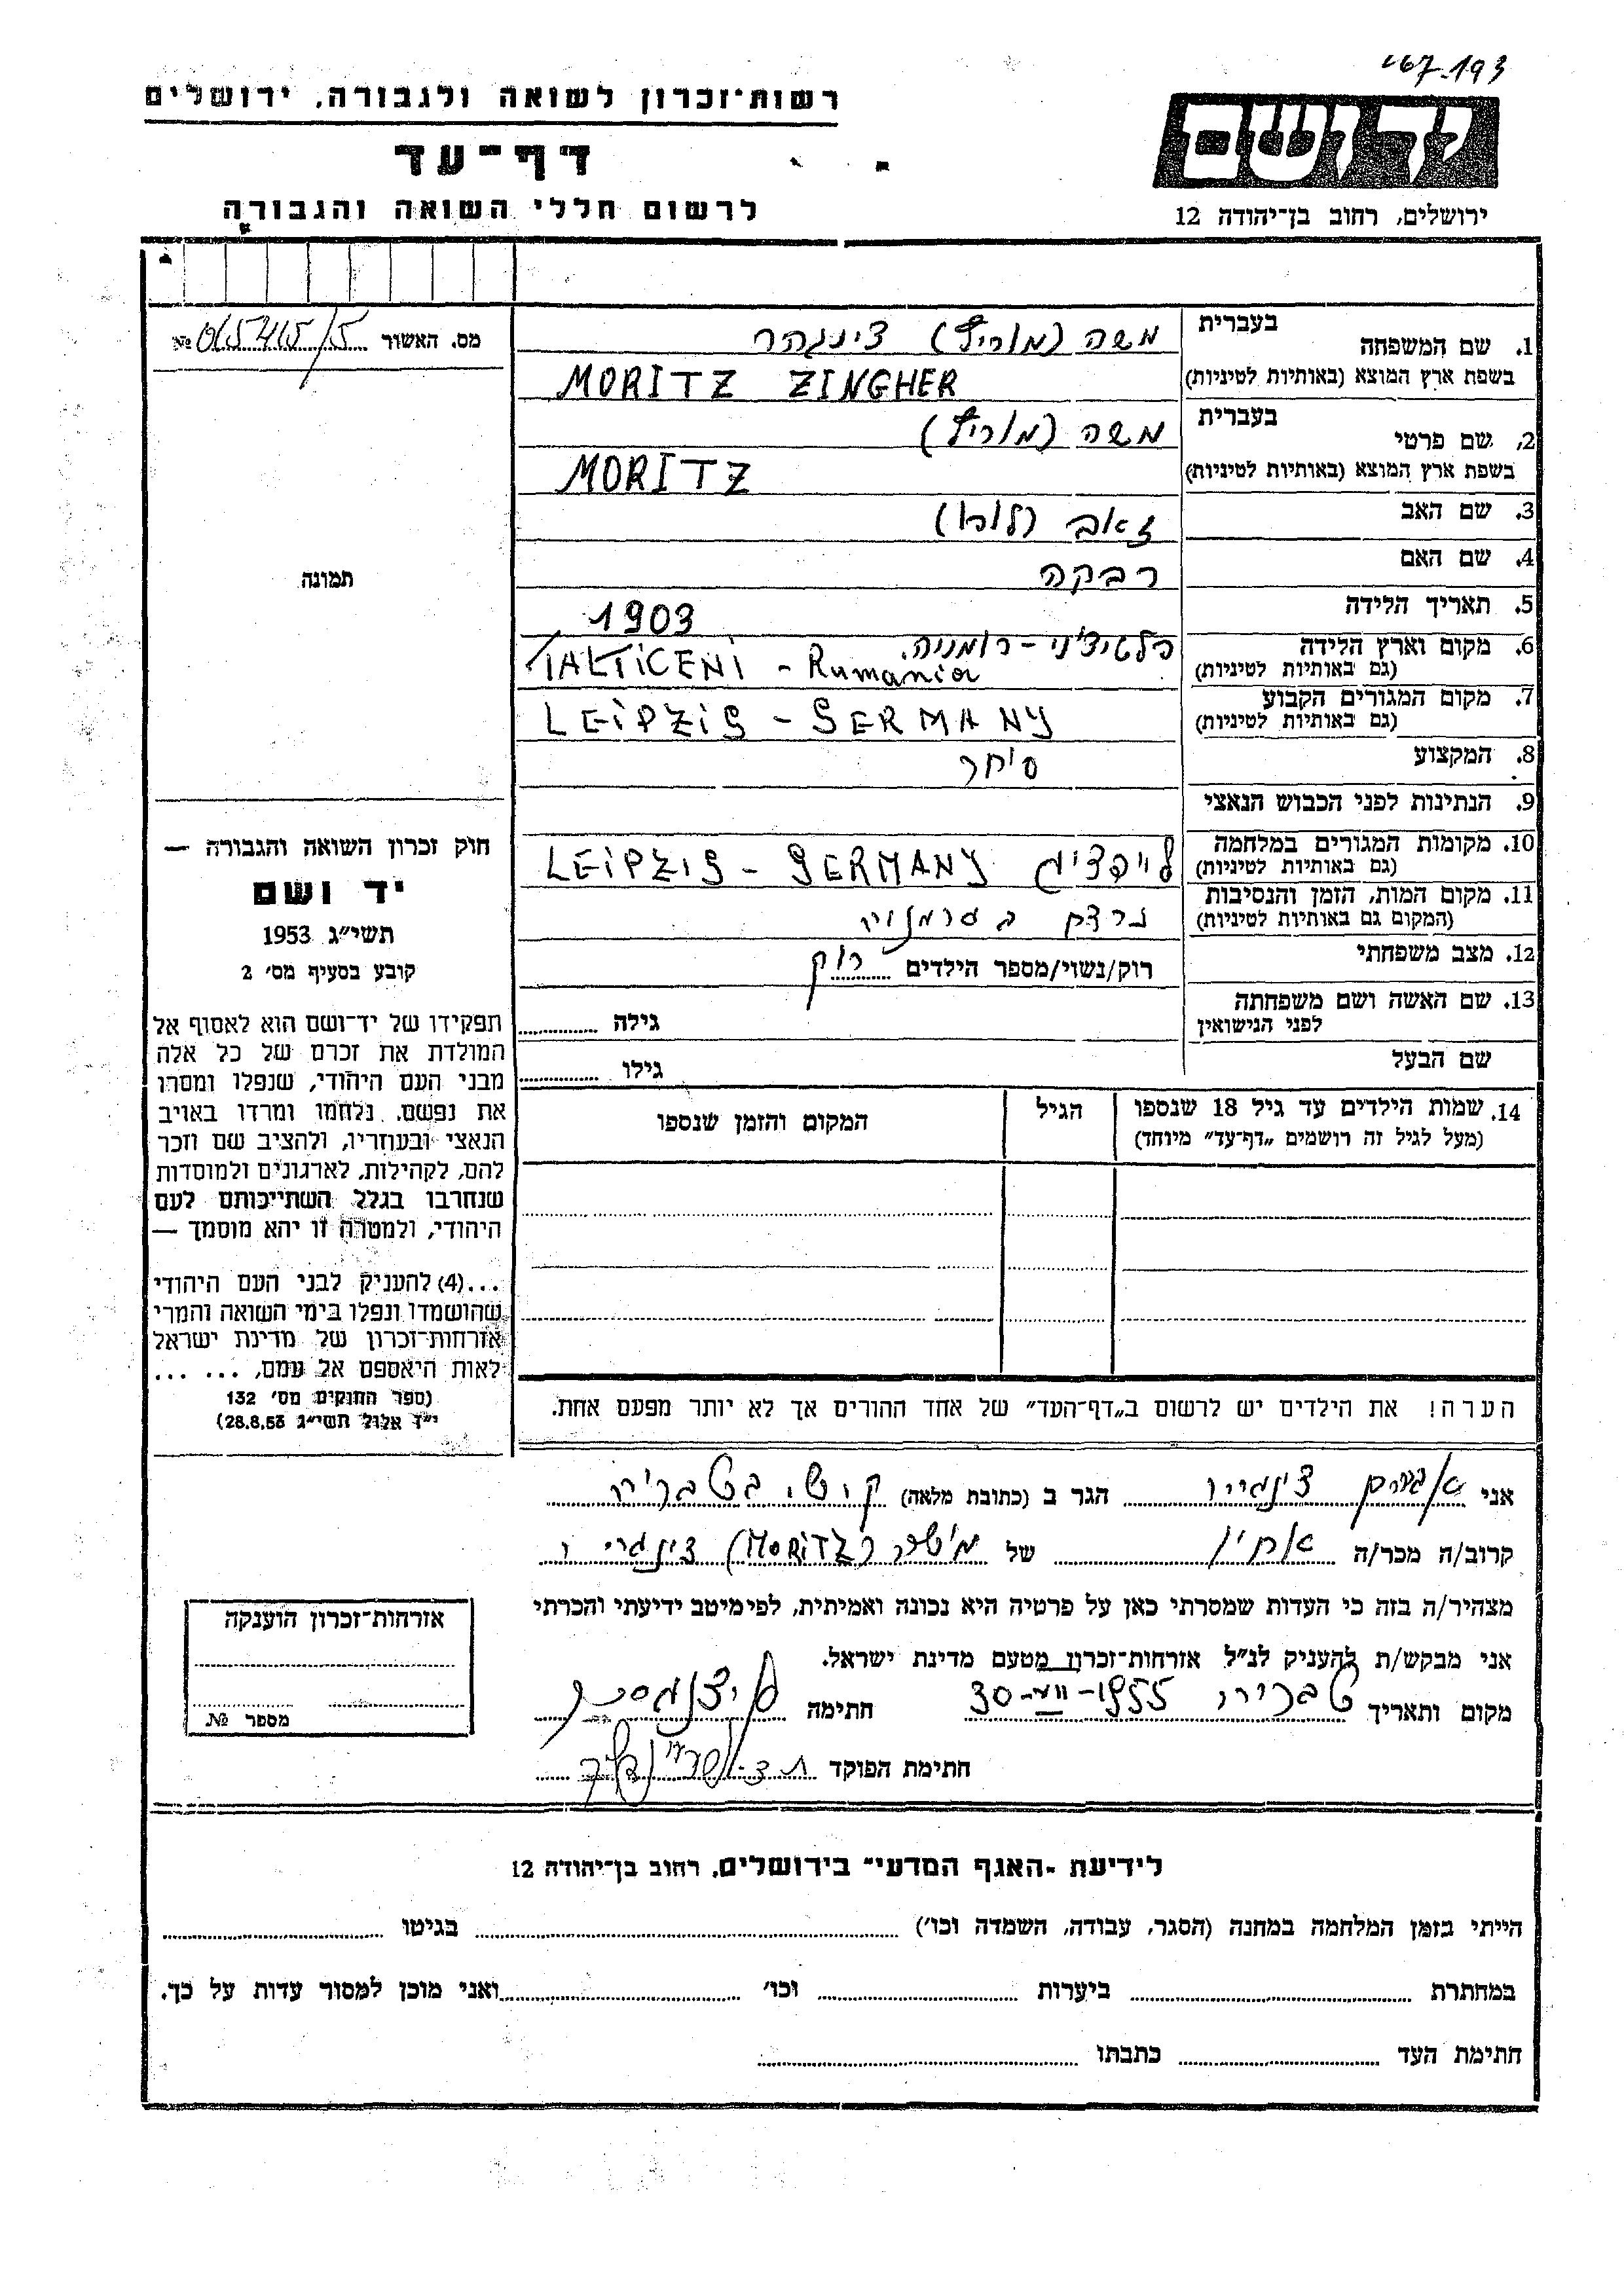 167-193
ידושם
ירושלים, רחוב בן־יהודה 12
רשות־זכרון לשואה ולגבורה, ירושלים
דף־עד
לרשום חללי השואה והגבורה
מס. האשור № 015415/5
תמונה
חוק זכרון השואה והגבורה —
יד ושם
תשי״ג 1953
קובע בסעיף מס׳ 2
תפקידו של יד־ושם הוא לאסוף אל
המולדת את זכרם של כל אלה
מבני העם היהודי, שנפלו ומסרו
את נפשם, נלחמו ומרדו באויב
הנאצי ובעוזריו, ולהציב שם וזכר
להם, לקהילות, לארגונים ולמוסדות
שנחרבו בגלל השתייכותם לעם
היהודי, ולמטרה זו יהא מוסמך —
...(4) להעניק לבני העם היהודי
שהושמדו ונפלו בימי השואה והמרי
אזרחות־זכרון של מדינת ישראל
לאות היאספם אל עמם, ... ...
(ספר החוקים מס׳ 132
י״ז אלול תשי״ג 28.8.53)
1. שם המשפחה בעברית משה (מוריץ) צינגהר
בשפת ארץ המוצא (באותיות לטיניות) MORITZ ZINGHER
2. שם פרטי בעברית משה (מוריץ)
בשפת ארץ המוצא (באותיות לטיניות) MORITZ
3. שם האב זאב (לובו)
4. שם האם רבקה
5. תאריך הלידה 1903
6. מקום וארץ הלידה פלטיצ'ני - רומניה.
(גם באותיות לטיניות) FALTICENI - Rumania
7. מקום המגורים הקבוע LEIPZIG - GERMANY
(גם באותיות לטיניות)
8. המקצוע סוחר
9. הנתינות לפני הכבוש הנאצי
10. מקומות המגורים במלחמה לייפציג LEIPZIG - GERMANY
(גם באותיות לטיניות)
11. מקום המות, הזמן והנסיבות נרצח בגרמניה
(המקום גם באותיות לטיניות)
12. מצב משפחתי רוק/נשוי/מספר הילדים רווק
13. שם האשה ושם משפחתה גילה
לפני הנישואין
שם הבעל גילו
14. שמות הילדים עד גיל 18 שנספו הגיל המקום והזמן שנספו
(מעל לגיל זה רושמים „דף־עד״ מיוחד)
הערה! את הילדים יש לרשום ב„דף־העד״ של אחד ההורים אך לא יותר מפעם אחת.
אני אברהם צינגייר הגר ב (כתובת מלאה) ק. ש. בטבריה
קרוב/ה מכר/ה אחיו של (MORITZ)
מצהיר/ה בזה כי העדות שמסרתי כאן על פרטיה היא נכונה ואמיתית, לפי מיטב ידיעתי והכרתי
אני מבקש/ת להעניק לנ״ל אזרחות־זכרון מטעם מדינת ישראל.
מקום ותאריך טבריה 30-VII-1955 חתימה
חתימת הפוקד
אזרחות־זכרון הוענקה
מספר №
לידיעת ״האגף המדעי״ בירושלים, רחוב בן־יהודה 12
הייתי בזמן המלחמה במחנה (הסגר, עבודה, השמדה וכו׳) בגיטו
במחתרת ביערות וכו׳ ואני מוכן למסור עדות על כך.
חתימת העד כתבתו